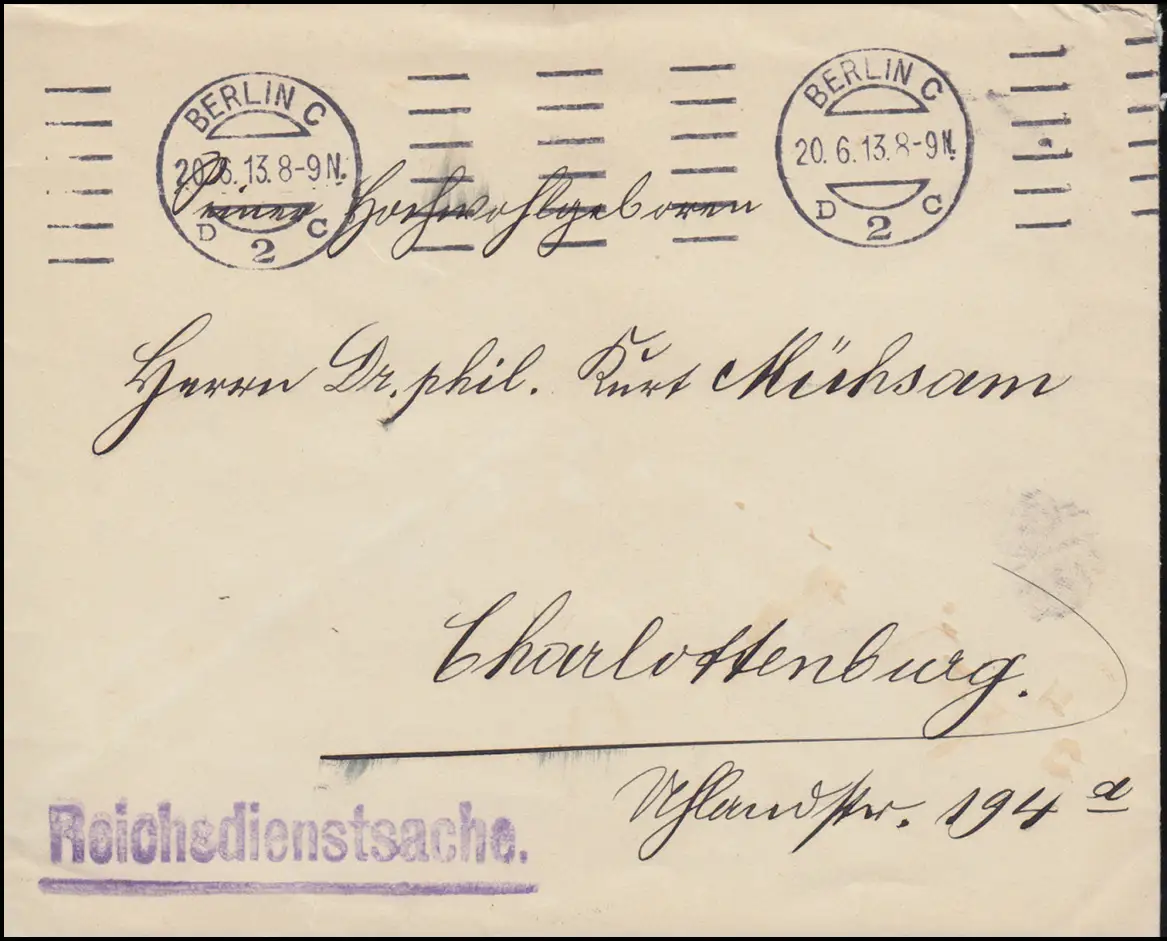 BERLIN C
20.6.13.8-9N.
D 2 C
BERLIN C
20.6.13.8-9N.
D 2 C
Seiner Hochwohlgeboren
Herrn Dr. phil. Kurt Mühsam
Charlottenburg.
Uhlandstr. 194 a
Reichsdienstsache.